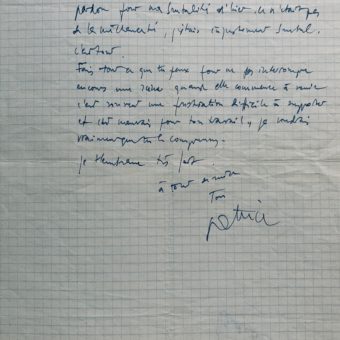 pardon pour ma brutalité d'hier. ce n'était pas
de la méchanceté, j'étais injustement brutal.
c'est tout.
Fais tout ce que tu peux pour ne pas interrompre
encore une scène quand elle commence à venir
c'est souvent une frustration difficile à supporter
et c'est mauvais pour ton travail, je voudrais
vraiment que tu le comprennes.
je t'embrasse très fort.
à tout
Ton
Patrice